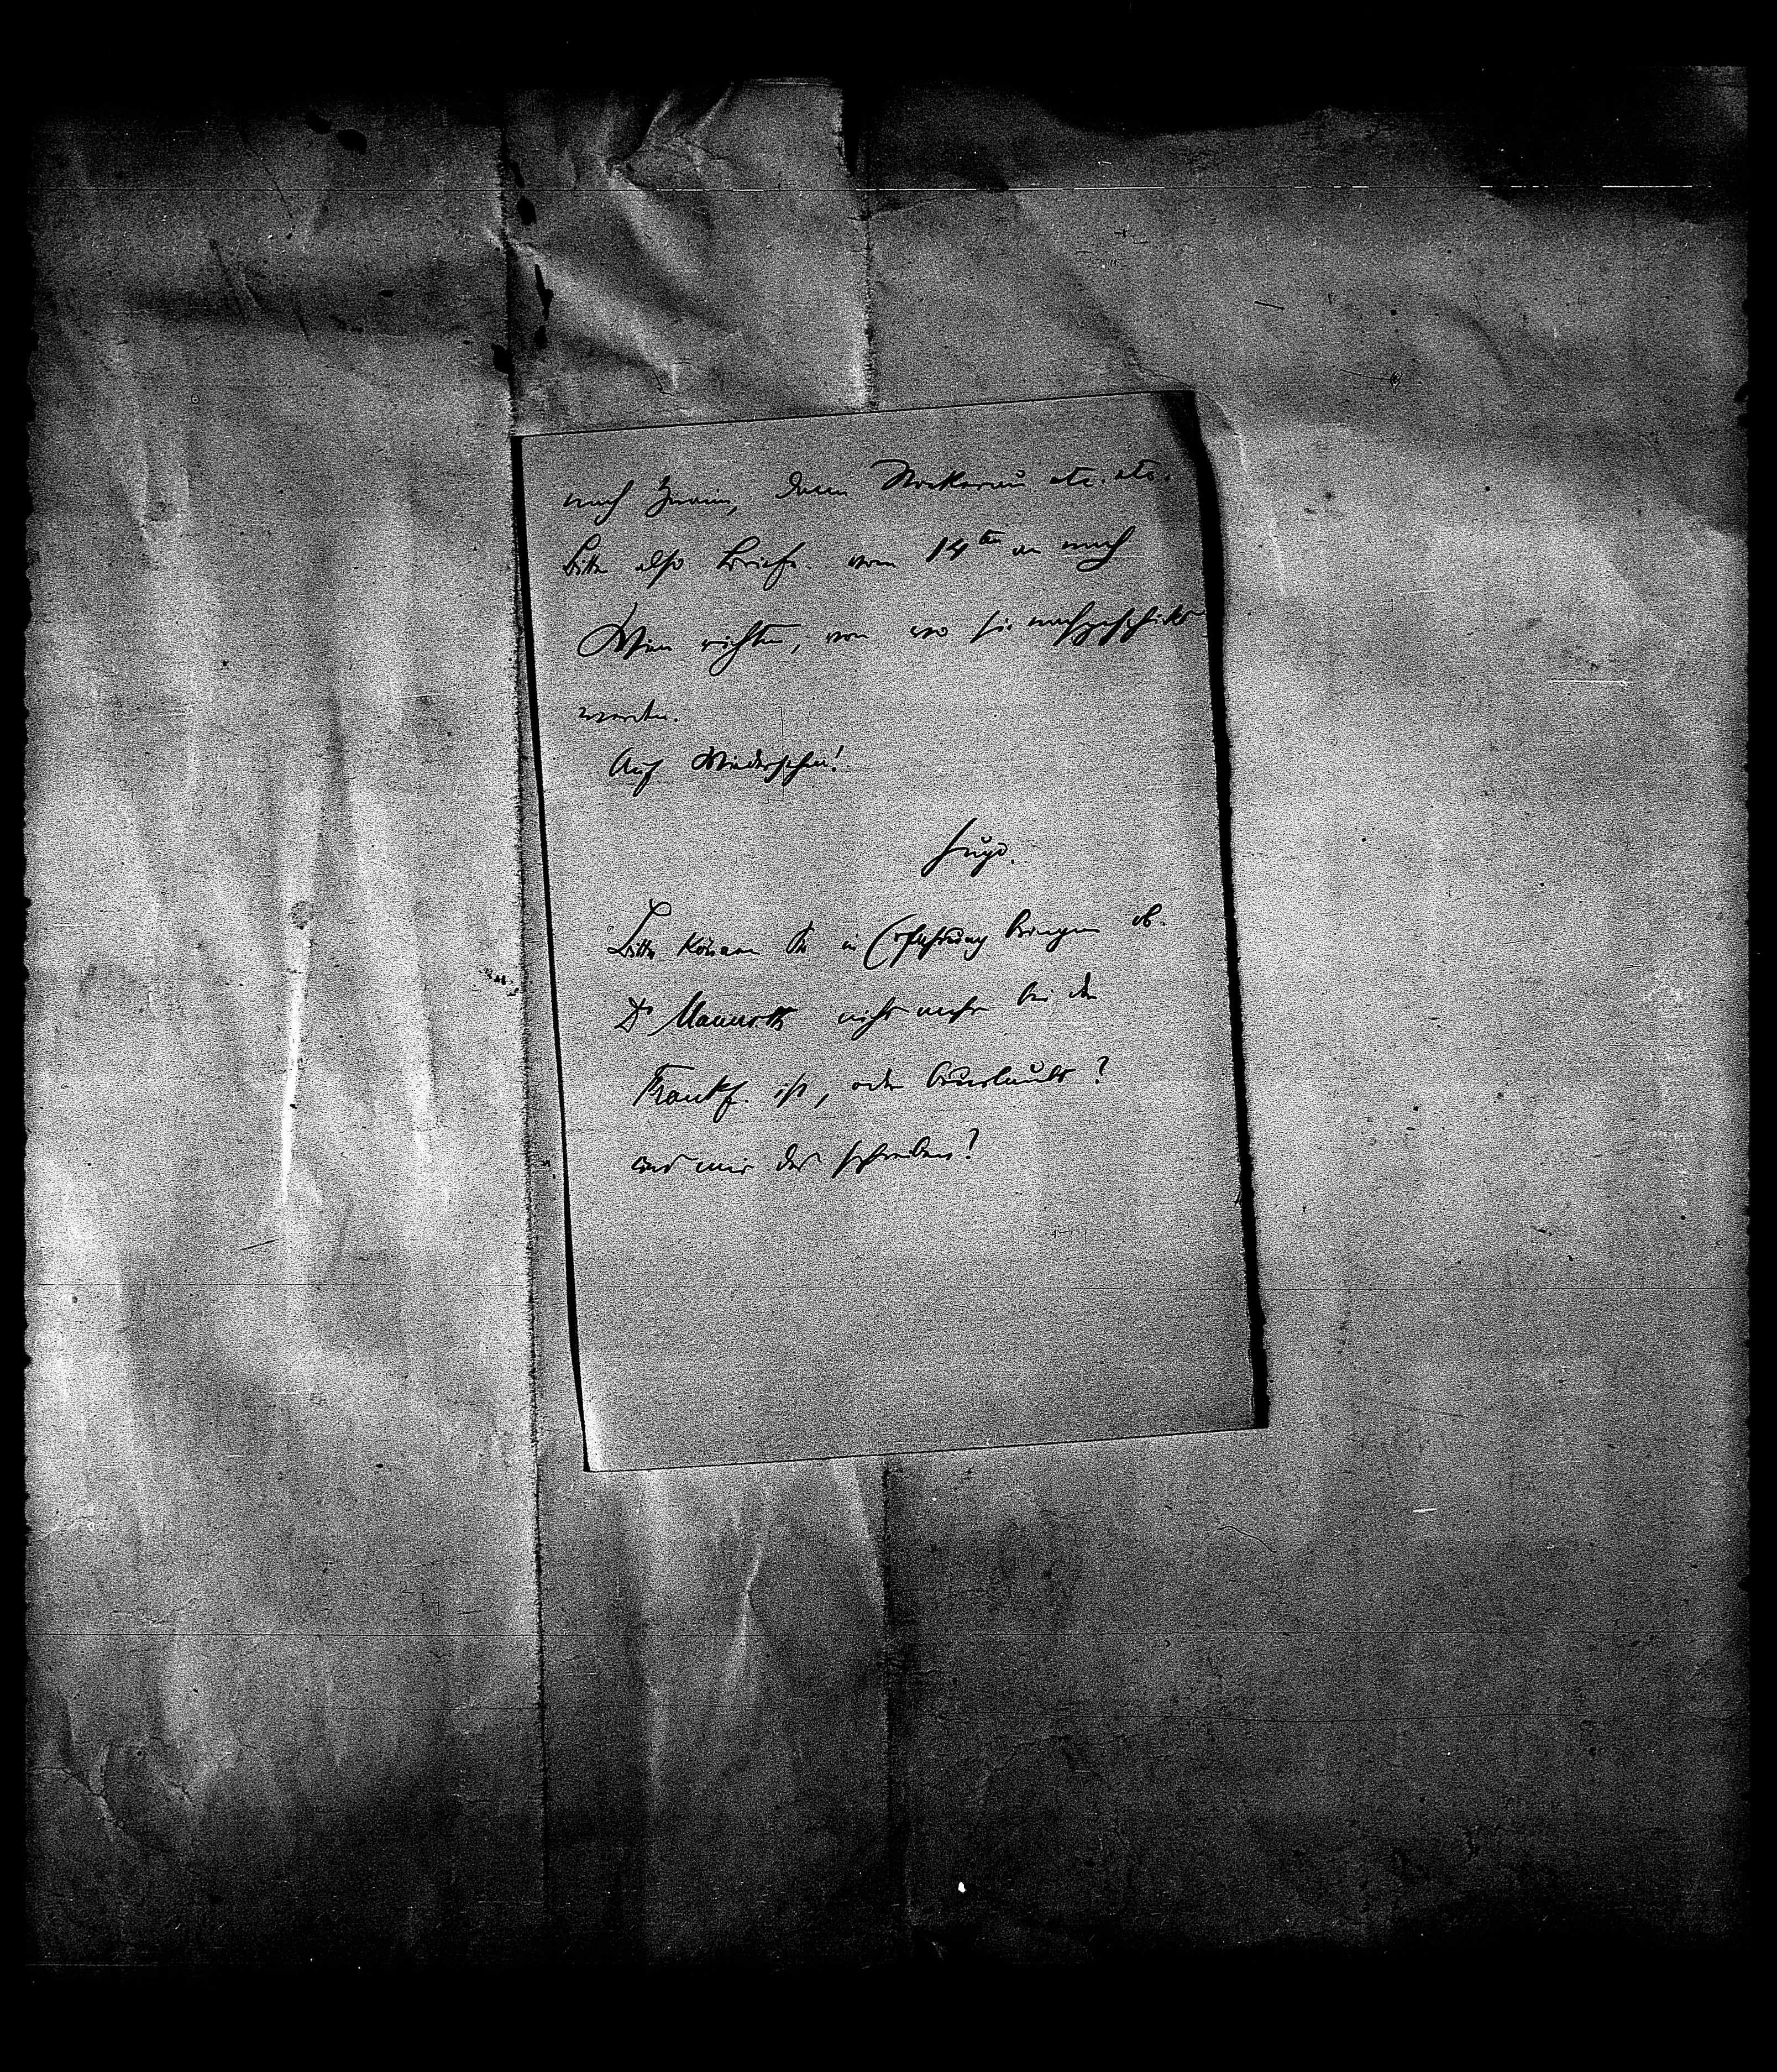 nach Znaim, dann Stockerau etc. etc.
Bitte also Briefe vom 14ten an nach
Wien richten, von wo sie nachgeschickt
werden.
Auf Wiedersehen!
Hugo.
Bitte können Sie in Erfahrung bringen ob
Dr nicht mehr bei der
Frankf. ist, oder beurlaubt?
und mir das schreiben?